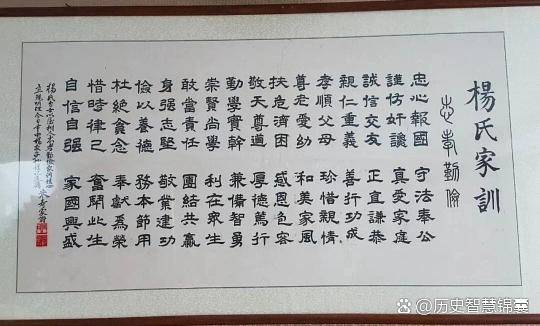 楊氏家訓
忠孝勤儉
忠心報國 守法奉公
謹仿奸讒 真愛家庭
誠信交友 正直謙恭
親仁重義 善行功成
孝順父母 珍惜親情
尊老愛幼 和美家風
扶危濟困 感恩包容
敬天尊道 厚德篤行
勤學實幹 兼備智勇
崇賢尚學 利在衆生
敢當責任 團結共贏
身强志堅 敬業建功
儉以養德 務本節用
杜絕貪念 奉獻爲榮
惜時律己 奮鬭此生
自信自强 家國興盛
@历史智慧锦囊